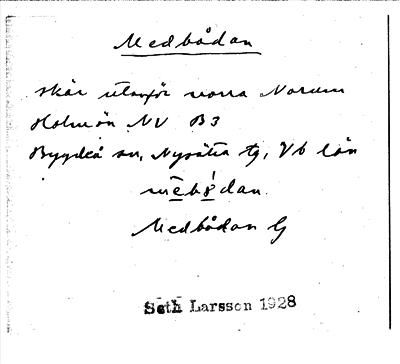 Medbådan
skär utanför norra Norum
Holmön NV B3
Bygdeå sn, Nysätra tg, Vb län
mēbǻdan.
Medbådan G
Seth Larsson 1928